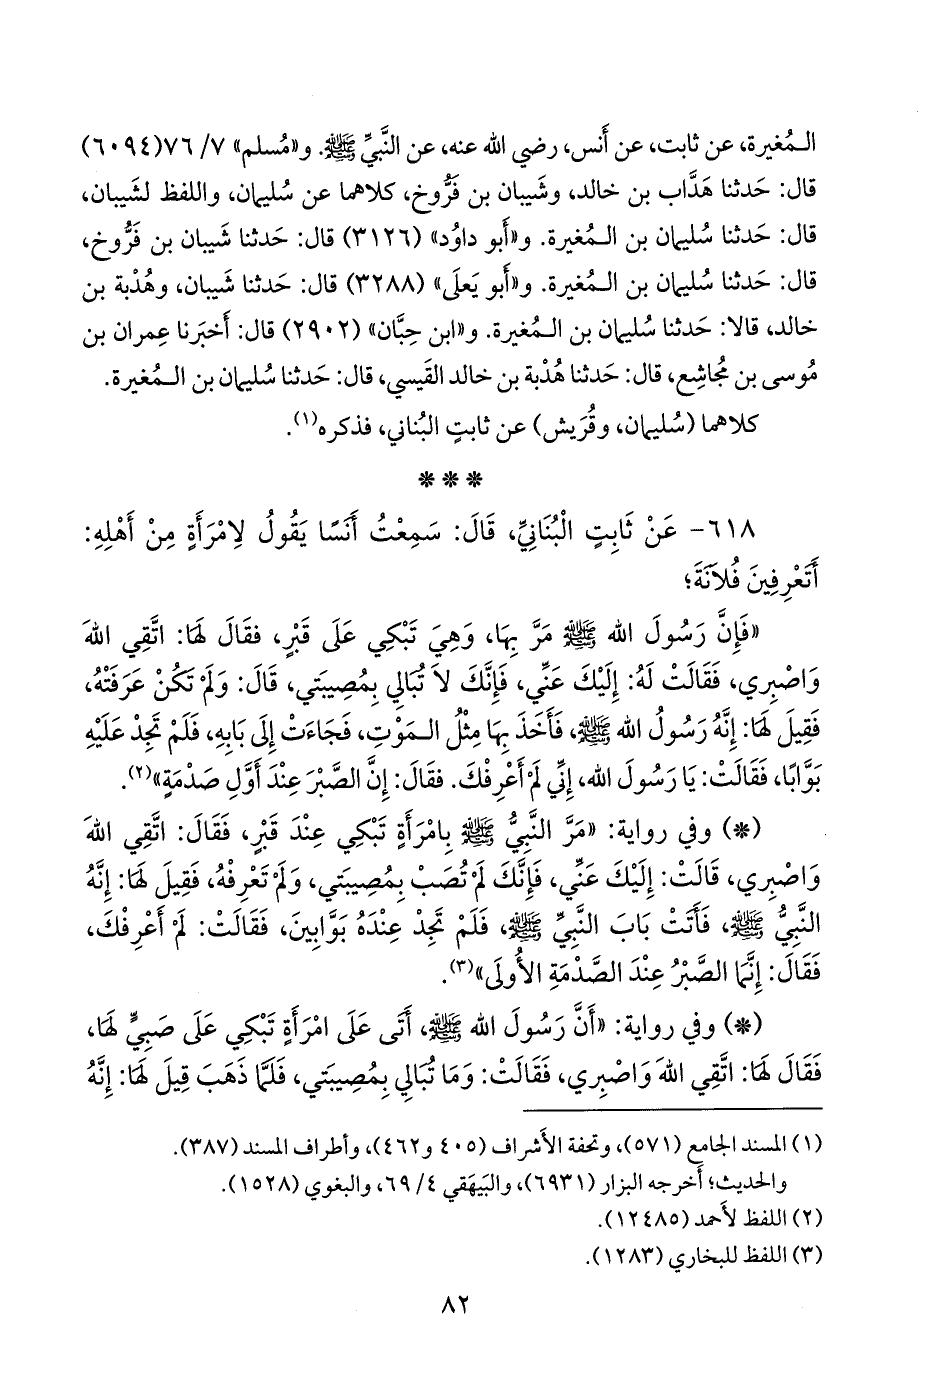 المُغيرة، عن ثابت، عن أَنس، رضي الله عنه، عن النَّبيِّ ﷺ. و«مُسلم» ٧/ ٧٦(٦٠٩٤)
قال: حَدثنا هَدَّاب بن خالد، وشَيبان بن فَرُّوخ، كلاهما عن سُليمان، واللفظ لشَيبان،
قال: حَدثنا سُليمان بن المُغيرة. و«أَبو داوُد» (٣١٢٦) قال: حَدثنا شَيبان بن فَرُّوخ،
قال: حَدثنا سُليمان بن المُغيرة. و«أَبو يَعلَى» (٣٢٨٨) قال: حَدثنا شَيبان، وهُدْبة بن
خالد، قالا: حَدثنا سُليمان بن المُغيرة. و«ابن حِبَّان» (٢٩٠٢) قال: أَخبَرنا عِمران بن
مُوسى بن مُجاشِع، قال: حَدثنا هُدْبة بن خالد القَيسي، قال: حَدثنا سُليمان بن المُغيرة.
كلاهما (سُليمان، وقُريش) عن ثابتٍ البُناني، فذكره(١).
* * *
٦١٨- عَنْ ثَابِتٍ الْبُنَانِيِّ، قَالَ: سَمِعْتُ أَنَسًا يَقُولُ لِامْرَأَةٍ مِنْ أَهْلِهِ:
أَتَعْرِفِينَ فُلَانَةَ؛
«فَإِنَّ رَسُولَ الله ﷺ مَرَّ بِهَا، وَهِيَ تَبْكِي عَلَى قَبْرٍ، فقَالَ لَهَا: اتَّقِي اللهَ
وَاصْبِرِي، فَقَالَتْ لَهُ: إِلَيْكَ عَنِّي، فَإِنَّكَ لَا تُبَالِي بِمُصِيبَتِي، قَالَ: وَلَمْ تَكُنْ عَرَفَتْهُ،
فَقِيلَ لَهَا: إِنَّهُ رَسُولُ الله ﷺ، فَأَخَذَ بِهَا مِثْلُ المَوْتِ، فَجَاءَتْ إِلَى بَابِهِ، فَلَمْ تَجِدْ عَلَيْهِ
بَوَّابًا، فَقَالَتْ: يَا رَسُولَ الله، إِنِّي لَمْ أَعْرِفْكَ. فقَالَ: إِنَّ الصَّبْرَ عِنْدَ أَوَّلِ صَدْمَةٍ»(٢).
(*) وفي رواية: «مَرَّ النَّبِيُّ ﷺ بِامْرَأَةٍ تَبْكِي عِنْدَ قَبْرٍ، فَقَالَ: اتَّقِي اللهَ
وَاصْبِرِي، قَالَتْ: إِلَيْكَ عَنِّي، فَإِنَّكَ لَمْ تُصَبْ بِمُصِيبَتِي، وَلَمْ تَعْرِفْهُ، فَقِيلَ لَهَا: إِنَّهُ
النَّبِيُّ ﷺ، فَأَتَتْ بَابَ النَّبِيِّ ﷺ، فَلَمْ تَجِدْ عِنْدَهُ بَوَّابِينَ، فَقَالَتْ: لَمْ أَعْرِفْكَ،
فَقَالَ: إِنَّمَا الصَّبْرُ عِنْدَ الصَّدْمَةِ الأُولَى»(٣).
(*) وفي رواية: «أَنَّ رَسُولَ الله ﷺ، أَتَى عَلَى امْرَأَةٍ تَبْكِي عَلَى صَبِيٍّ لَهَا،
فَقَالَ لَهَا: اتَّقِي اللهَ وَاصْبِرِي، فَقَالَتْ: وَمَا تُبَالِي بِمُصِيبَتِي، فَلَمَّا ذَهَبَ قِيلَ لَهَا: إِنَّهُ
(١) المسند الجامع (٥٧١)، وتحفة الأَشراف (٤٠٥ و٤٦٢)، وأطراف المسند (٣٨٧).
والحديث؛ أَخرجه البزار (٦٩٣١)، والبَيهَقي ٤/ ٦٩، والبغوي (١٥٢٨).
(٢) اللفظ لأَحمد (١٢٤٨٥).
(٣) اللفظ للبخاري (١٢٨٣).
٨٢